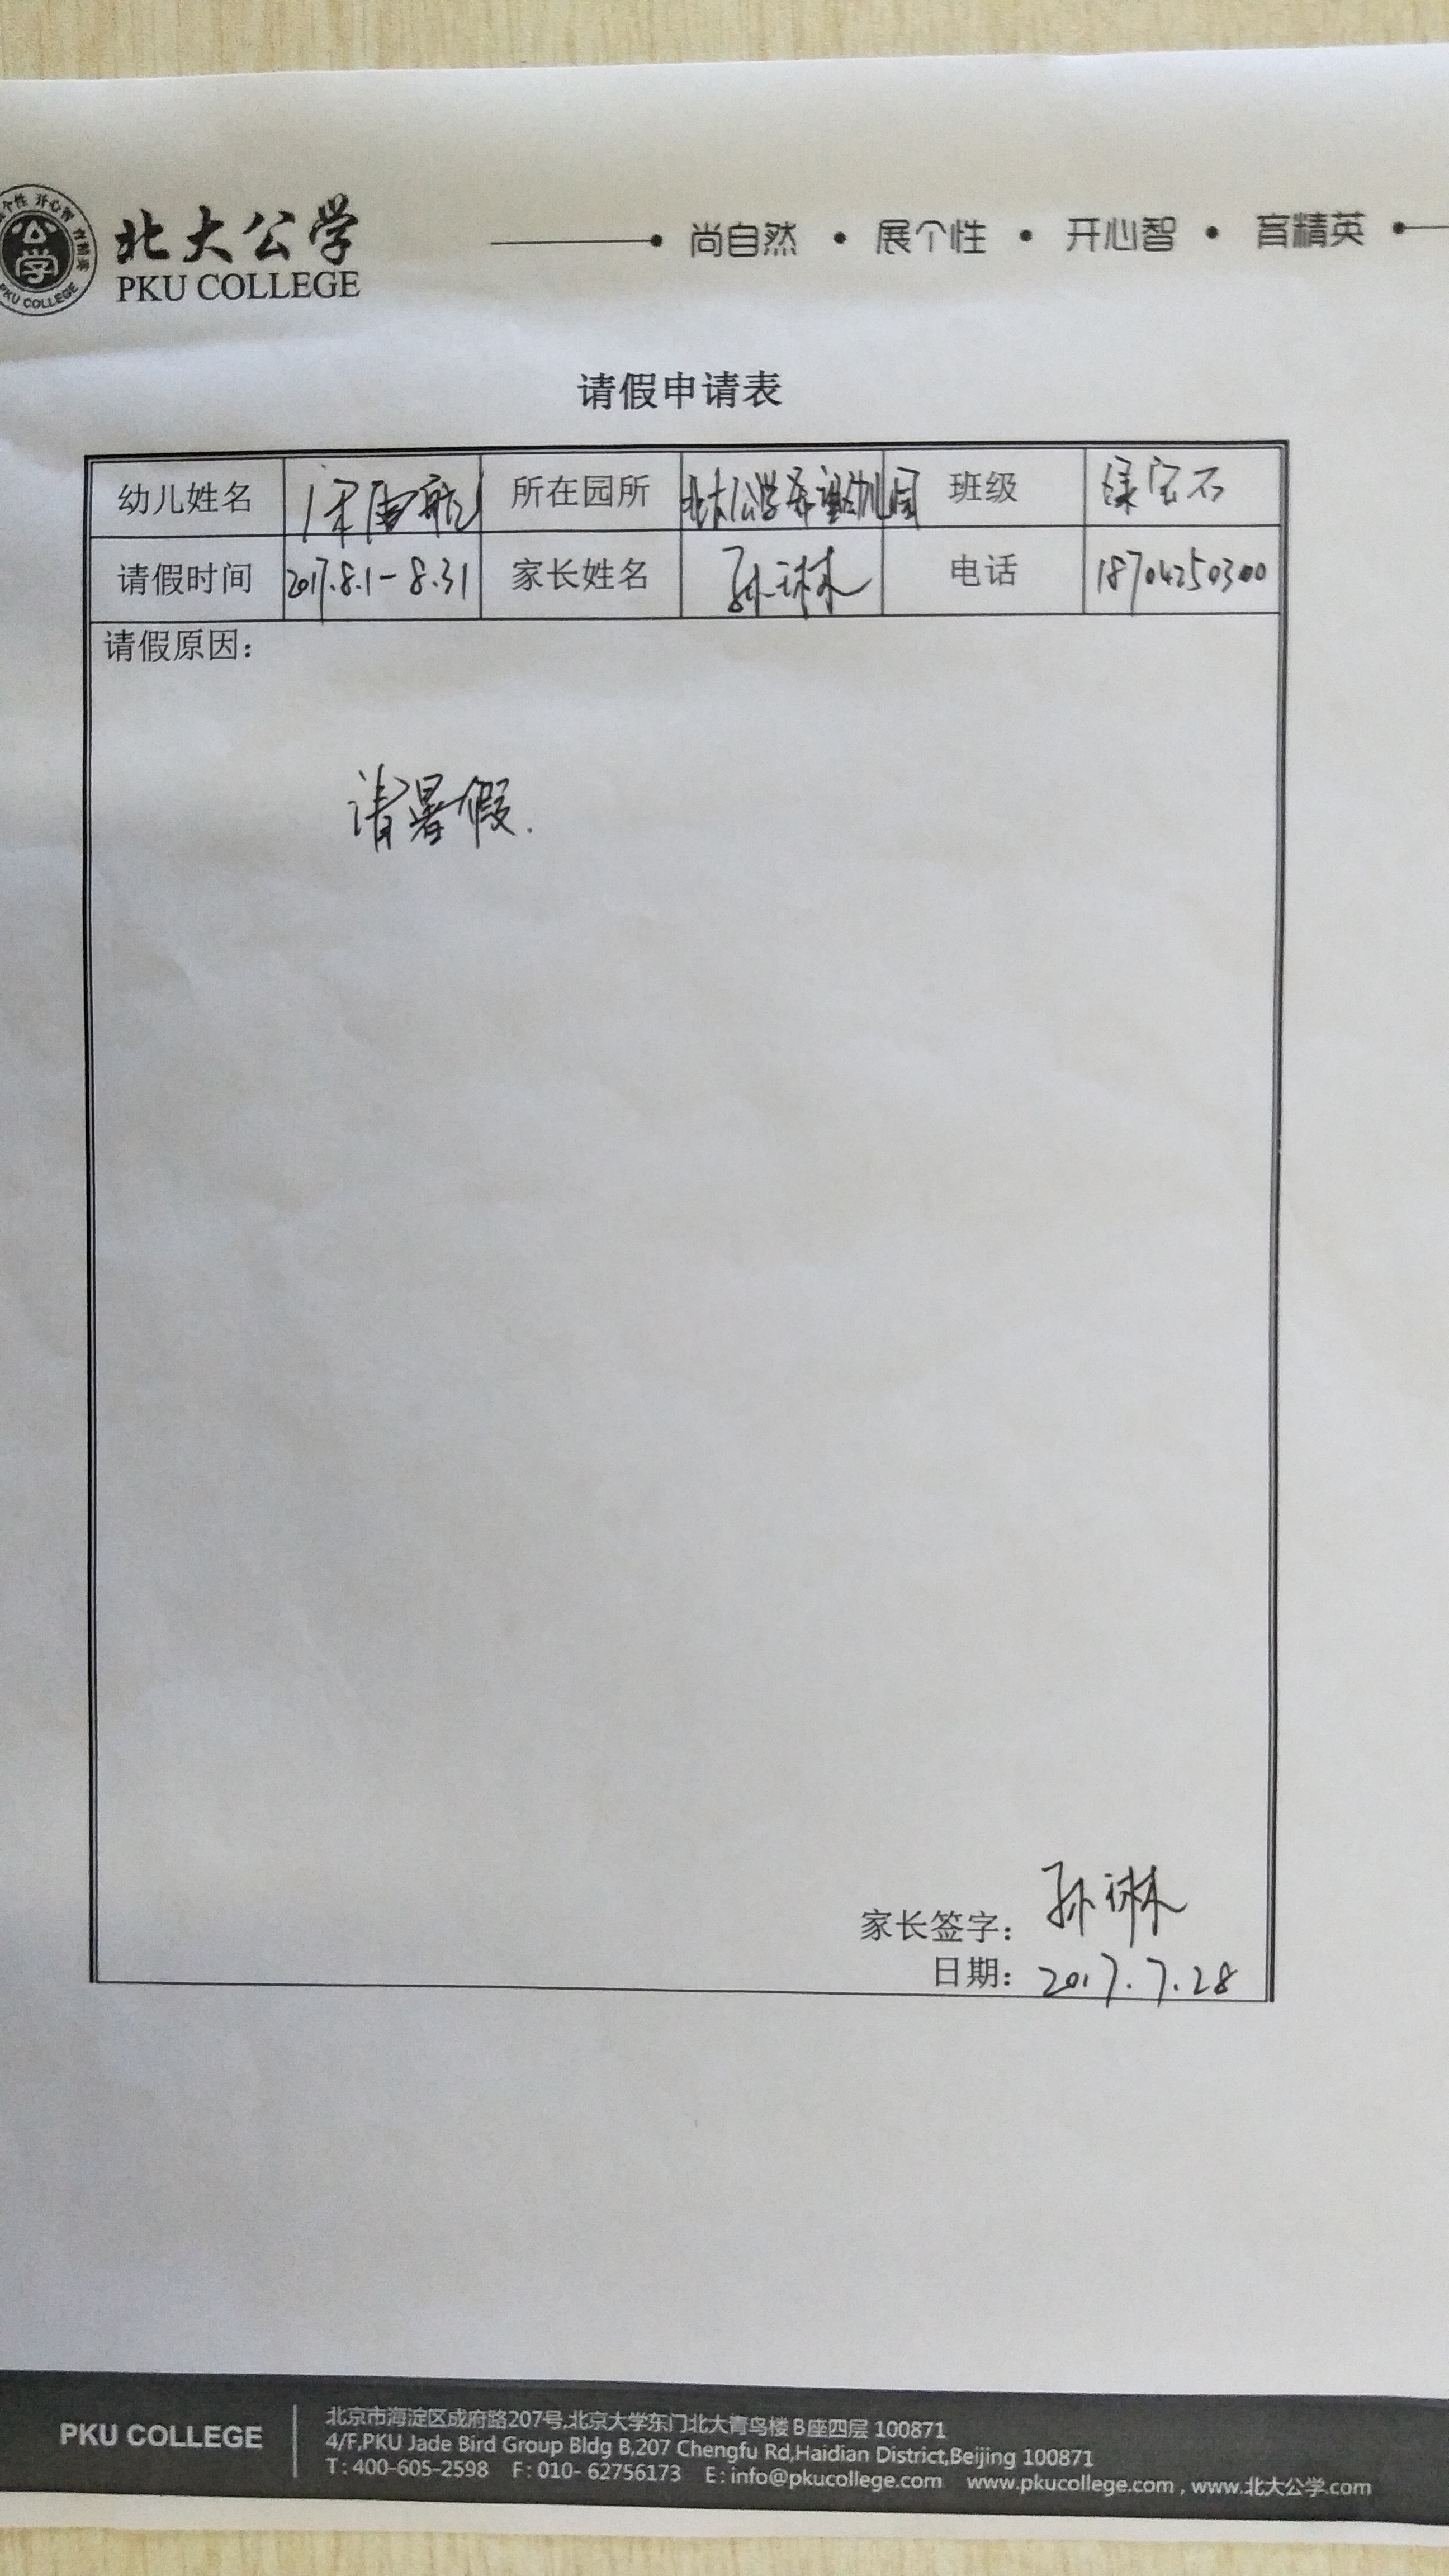 北大公学
PKU COLLEGE
尚自然 • 展个性 • 开心智 • 育精英
请假申请表
幼儿姓名 所在园所 北大公学希望幼儿园 班级 绿宝石
请假时间 2017.8.1-8.31 家长姓名 孙琳 电话 18704250300
请假原因：
请暑假.
家长签字：孙琳
日期：2017.7.28
PKU COLLEGE
北京市海淀区成府路207号,北京大学东门北大青鸟楼B座四层 100871
4/F,PKU Jade Bird Group Bldg B,207 Chengfu Rd,Haidian District,Beijing 100871
T: 400-605-2598 F: 010- 62756173 E: info@pkucollege.com www.pkucollege.com , www.北大公学.com